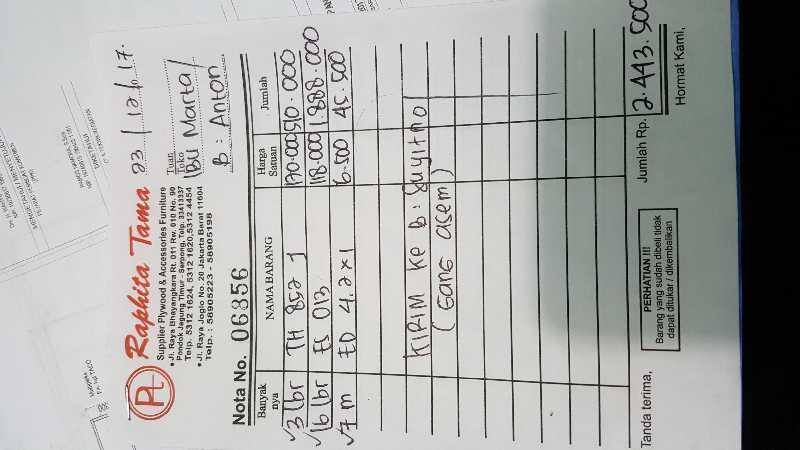 Raphita Tama
Supplier Plywood & Accessories Furniture
• Jl. Raya Bhayangkara Rt. 011 Rw. 010 No. 90
Pondok Jagung Timur - Serpong, Telp. 53413337
Telp. 5312 1624, 5312 1620, 5312 4454
• Jl. Raya Joglo No. 20 Jakarta Barat 11604
Telp. : 58905223 - 58905198
23/12/17.
Tuan
Toko
Ibu Marta/
B: Anton
Nota No. 06356
Banyak nya NAMA BARANG Harga Satuan Jumlah
3 lbr TH 852 J 170.000 510.000
16 lbr ES 013 118.000 1.888.000
7 m ED 4.2x1 6.500 45.500
KIRIM ke B: Suyitno/
(Gang asem)
Tanda terima,
PERHATIAN !!!
Barang yang sudah dibeli tidak
dapat ditukar / dikembalikan
Jumlah Rp. 2.443.500
Hormat Kami,